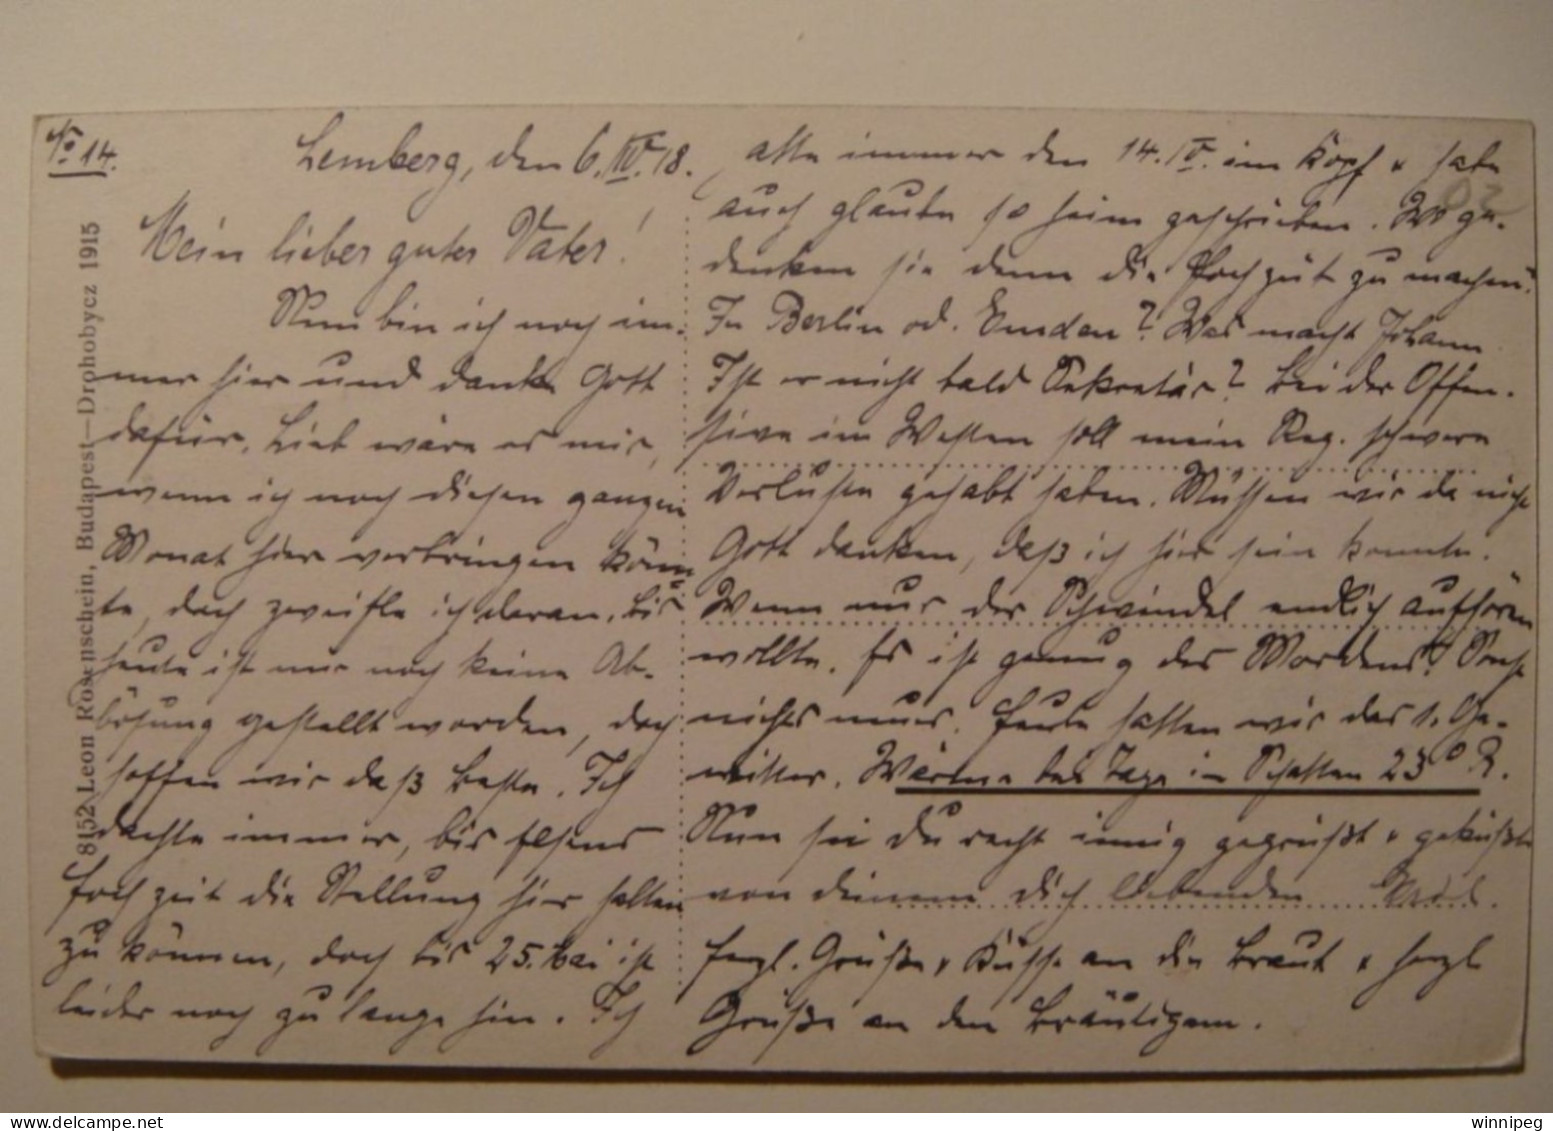 No 14.
Lemberg, den 6. IV. 18.
Mein lieber guter Vater!
Nun bin ich noch im-
mer hier und danke Gott
dafür. Lieb wäre es mir,
wenn ich noch diesen ganzen
Monat hier verbringen könn
te, doch zweifle ich daran. Bis
heute ist mir noch keine Ab-
lösung gestellt worden, doch
hoffen wir daß beste. Ich
dachte immer, bis
Hochzeit die Stellung hier halten
zu können, doch bis 25. Mai ist
leider noch zu lange hin. Ich
hatte immer den 14. IV. im Kopf & habe
auch glaube so heim geschrieben. Wo ge-
denken sie denn die Hochzeit zu machen?
In Berlin od. Emden? Was macht Johann
Ist er nicht bald Sekretär? Bei der Offen-
sive im Westen soll mein Reg. schwere
Verluste gehabt haben. Müssen wir da nicht
Gott danken, daß ich hier sein konnte.
Wenn nur der Schwindel endlich aufhören
wollte. Es ist genug des Mordens! Sonst
nichts neues. Heute hatten wir das 1. Ge-
witter. Wärme bei Tage im Schatten 23° R.
Nun sei Du recht innig gegrüßt & geküßt
von deinem Dich liebenden
Herzl. Grüße & Küsse an die Braut & herzl
Grüße an den Bräutigam.
8152 Leon Rosenschein, Budapest—Drohobycz 1915
02
winnipeg